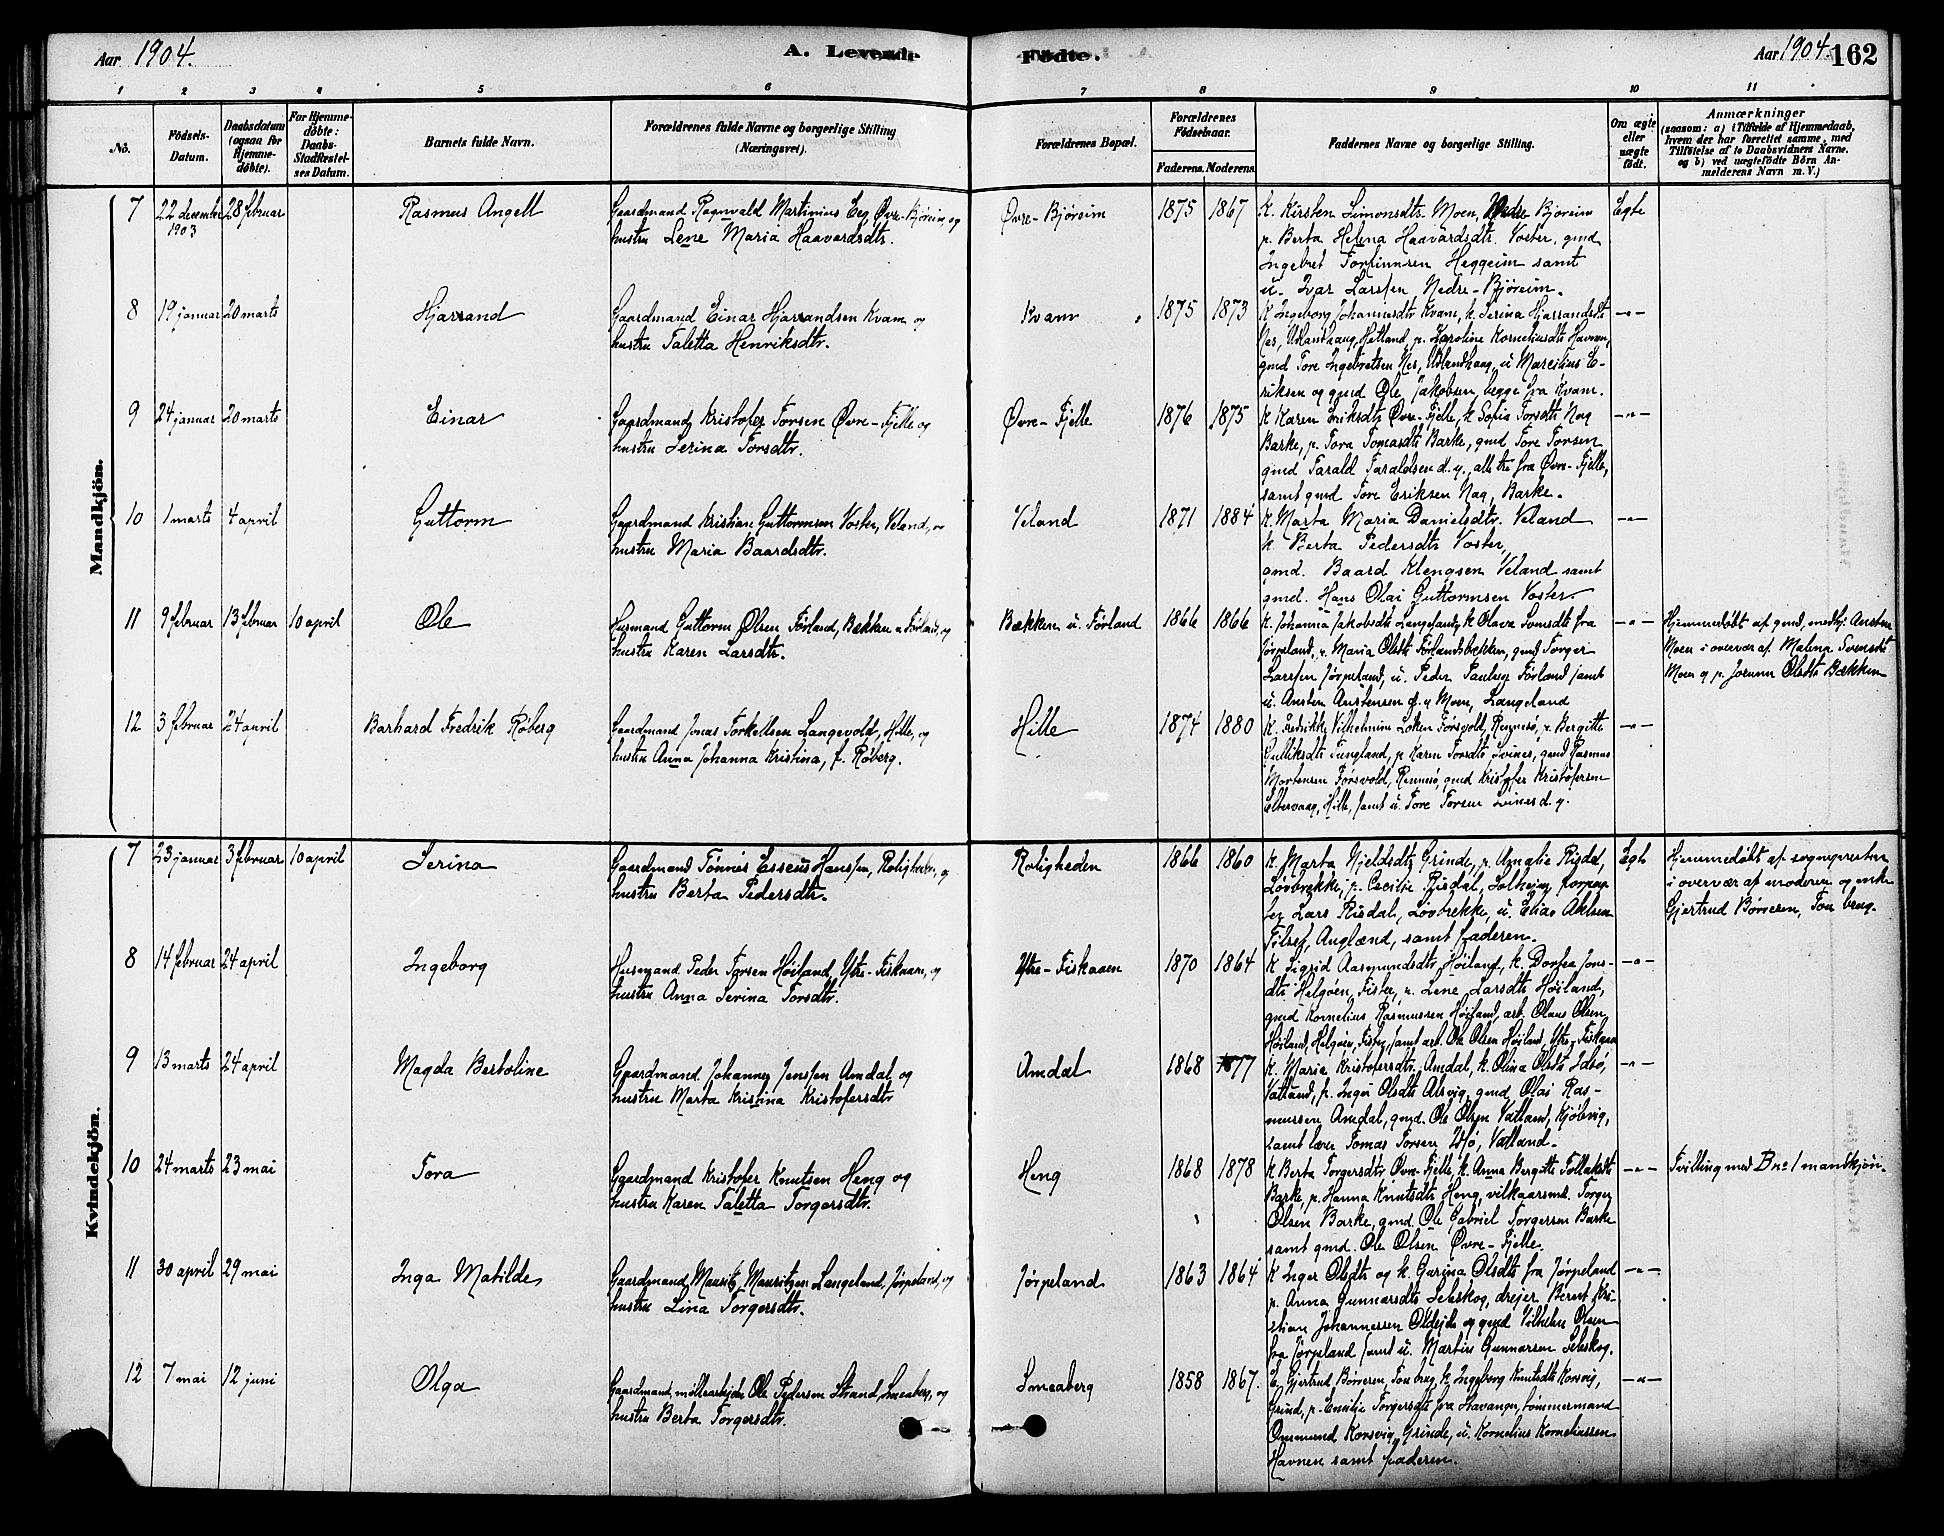 Aar 1904.
A. Levende
Fødte.
Aar 1904. 162
1 2 3 4 5 6 7 8 9 10 11
No.
Födsels-Datum.
Daabsdatum (ogsaa for Hjemmedøbte).
For Hjemmedøbte: Daabs-Stadfæstelses Datum.
Barnets fulde Navn.
Forældrenes fulde Navne og borgerlige Stilling (Næringsvei).
Forældrenes Bopæl.
Forældrenes Födselsaar.
Faderens. Moderens.
Faddernes Navne og borgerlige Stilling.
Om ægte eller uægte født.
Anmærkninger
(saasom: a) i Tilfælde af Hjemmedaab, hvem der har forrettet samme, med Tilføielse af to Daabsvidners Navne. og b) ved uægtefødte Børn Anmelderens Navn m. V.)
Mandkjön.
7 22 december 1903 28 februar Rasmus Angell
Gaardmand Ragnvald Martinius Eeg Øvre-Bjøreim, og
hustru Lene Maria Haavardsdtr.
Øvre-Bjøreim 1875 1867
K. Kirsten Simonsdtr. Moen, Nedre Bjoreim
p. Berta Helena Haavardsdtr. Voster, gmd
Ingebret Torfinnsen Heggeim samt
u. Ivar Larssen Nedre-Bjøreim.
Egte
8 19 januar 20 marts Hjarrand
Gaardmand Einar Hjarrandsen Kvam og
hustru Taletta Henriksdtr.
Kvam 1875 1873
K Ingeborg Johannesdtr Kvam, k. Serina Hjarrandsdt
Nes, Utlandhaug, Hetland, p. Karoline Korneliusdtr Havnen,
gmd Tore Ingebretsen Nes, Utlandhaug, u Marselius E-
riksen og gmd Ole Jakobsen, begge fra Kvam.
-"-
9 24 januar 20 marts Einar
Gaardmand Kristofer Torsen Øvre-Fjelle og
hustru Serina Torsdtr.
Øvre-Fjelle 1876 1875
K Karen Eriksdtr Øvre-Fjelle, k. Sofia Torsdtr Nag
Barke, p. Tora Tomasdtr Barke, gmd Tore Torsen
gmd Tarald Taraldsen d. y., alle tre fra Øvre-Fjelle,
samt gmd Tore Eriksen Nag, Barke.
-"-
10 1 marts 4 april Guttorm
Gaardmand Kristian Guttormsen Voster, Veland, og
hustru Maria Baardsdtr.
Veland 1871 1884
K. Marta Maria Danielsdtr. Veland
k Berta Pedersdtr Voster,
gmd. Baard Klengsen Veland samt
gmd. Hans Olai Guttormsen Voster
-"-
11 9 februar 13 februar 10 april Ole
Husmand Guttorm Olsen Førland, Bækken u Førland, og
hustru Karen Larsdtr.
Bækken u. Førland 1866 1866
K. Johanna Jakobsdtr Langeland, k. Olava Svensdtr fra
Jørpeland, p. Maria Olsdtr Førlandsbækken, gmd Torger
Larssen Jørpeland, u. Peder Paulsen Førland samt
u. Austen Austensen d. y Moen, Langeland
-"-
Hjemmedøbt af gmd, medhj. Austen
Moen i overvær af Malena Svensdtr
Moen og p. Jorunn Olsdtr Bækken
12 3 februar 24 april Barhard Fredrik Røberg
Gaardmand Jonas Torkellsen Langevold, Hille, og
hustru Anna Johanna Kristina, f. Røberg.
Hille 1874 1880
K. Fredrikke Vilhelmine Løken Førsvold, Rennesø, p. Bergitte
Gulliksdtr Tungland, p Karen Torsdtr Svines, gmd Rasmus
Mortensen Førsvold, Rennesø, gmd Kristofer Kristofersen
Eltervaag, Hille, samt u. Tore Torsen Svines d. y.
-"-
Kvindekjön.
7 23 januar 3 februar 10 april Serina
Gaardmand Tønnes Esseus Hanssen, Roligheden, og
hustru Berta Pedersdtr.
Roligheden 1866 1860
K. Marta Kjeldsdtr Grinde, p. Amalie Risdal,
Løvbrekke, p. Cecilie Risdal, Solheim,
Lars Risdal, Løvbrekke, u. Elias
samt faderen.
Egte
Hjemmedøbt af sognepresten
i overvær af moderen og enke
Gjertrud Børresen, Tou brug.
8 14 februar 24 april Ingeborg
Husmand Peder Torsen Høiland, Ytre-Fiskaaen, og
hustru Anna Serina Torsdtr.
Ytre-Fiskaaen 1870 1864
K Sigrid Aasmundsdtr Høiland, k. Dorfea Jons-
dtr Helgøen, Fister, p. Lene Larsdtr Høiland,
gmd Kornelius Rasmussen Høiland, arb. Olaus Olsen
Høiland, Helgøen, Fister, samt arb. Ole Olsen Høiland, Ytre-Fiskaaen
-"-
9 13 marts 24 april Magda Bertoline
Gaardmand Johannes Jenssen Amdal og
hustru Marta Kristina Kristofersdtr
Amdal 1868 1877
K. Maria Kristofersdtr. Amdal, k. Olina Olsdtr Idsø,
Vatland, p. Inger Olsdtr Alsvig, gmd Olai Ras-
mussen Amdal, gmd. Ole Olsen Vatland, Kjølevig,
samt lærer Tomas Torsen Idsø, Vatland.
-"-
10 24 marts 23 mai Tora
Gaardmand Kristofer Knutsen Heng og
hustru Karen Taletta Torgersdtr.
Heng 1868 1878
K Berta Torgersdtr Øvre-Fjelle, k. Anna Bergitte Tollaksdtr
Barke, p. Hanna Knutsdtr Heng, vilkaarsmd. Torger
Olsen Barke, gmd. Ole Gabriel Torgersen Barke
samt gmd. Ole Olsen Øvre-Fjelle.
-"-
Tvilling med B no 1 mandkjøn.
11 30 april 29 mai Inga Matilde
Gaardmand Mauritz Mauritzen Langeland, Jørpeland, og
hustru Lina Torgersdtr.
Jørpeland 1863 1864
K Inger Olsdtr og k. Gurina Olsdtr fra Jørpeland
p. Anna Gunnarsdtr Seleskog, drejer Bernt Kri-
stian Johannessen Oldejde og gmd Vilhelm Olsen
fra Jørpeland samt u. Martin Gunnarsen Seleskog.
-"-
12 7 mai 12 juni Olga
Gaardmand, møllearbejder Ole Pedersen Strand, Smeaberg, og
hustru Berta Torgersdtr.
Smeaberg 1858 1867.
E. Gjertrud Børresen, Tou brug, k. Ingeborg Knutsdtr Korsvig,
Grinde, p. Emilie Torgersdtr fra Stavanger, tømmermand
Ommund Korsvig, Grinde, u. Kornelius Korneliussen
Havnen samt faderen.
-"-